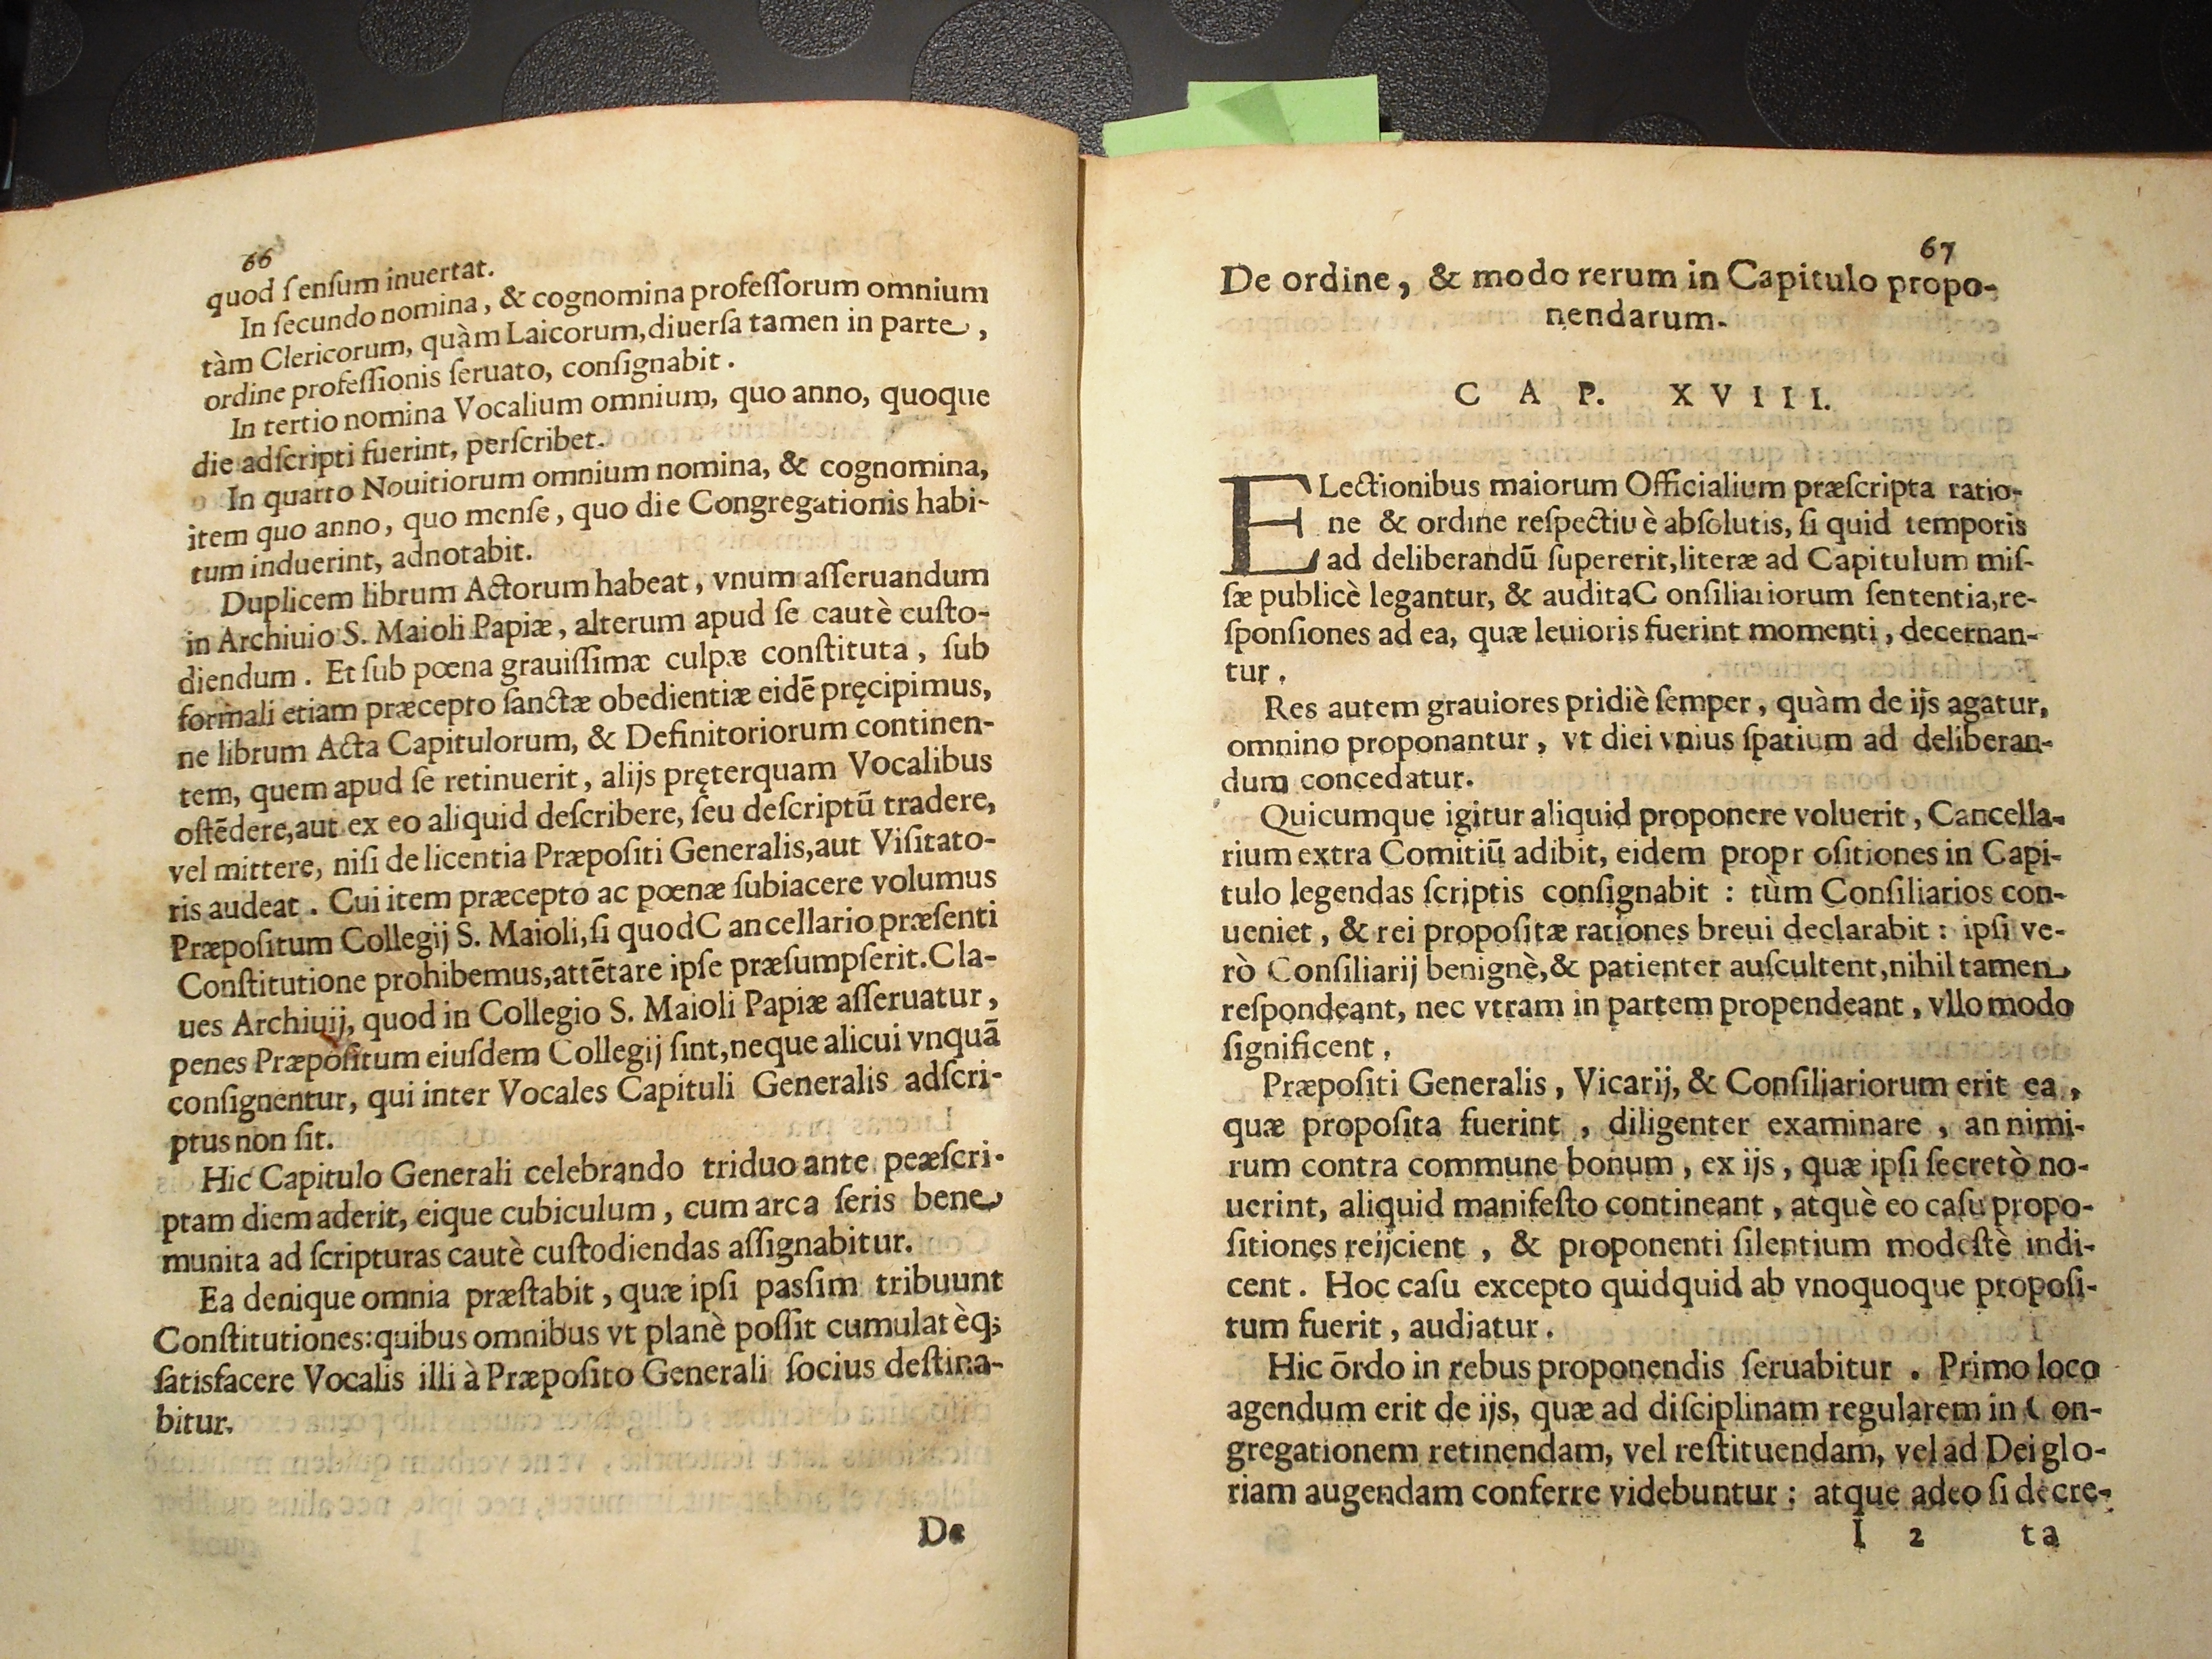 66
quod ſenſum inuertat.
In ſecundo nomina, & cognomina profeſſorum omnium
tàm Clericorum, quàm Laicorum, diuerſa tamen in parte,
ordine profeſſionis ſeruato, conſignabit.
In tertio nomina Vocalium omnium, quo anno, quoque
die adſcripti fuerint, perſcribet.
In quarto Nouitiorum omnium nomina, & cognomina,
item quo anno, quo menſe, quo die Congregationis habi-
tum induerint, adnotabit.
Duplicem librum Actorum habeat, vnum aſſeruandum
in Archiuio S. Maioli Papiæ, alterum apud ſe cautè cuſto-
diendum. Et ſub pœna grauiſſimæ culpæ conſtituta, ſub
formali etiam præcepto ſanctæ obedientiæ eidē pręcipimus,
ne librum Acta Capitulorum, & Definitoriorum continen-
tem, quem apud ſe retinuerit, alijs pręterquam Vocalibus
oſtēdere, aut ex eo aliquid deſcribere, ſeu deſcriptū tradere,
vel mittere, niſi de licentia Præpoſiti Generalis, aut Viſitato-
ris audeat. Cui item præcepto ac pœnæ ſubiacere volumus
Præpoſitum Collegij S. Maioli, ſi quod C ancellario præſenti
Conſtitutione prohibemus, attētare ipſe præſumpſerit. Cla-
ues Archiuij, quod in Collegio S. Maioli Papiæ aſſeruatur,
penes Præpoſitum eiuſdem Collegij ſint, neque alicui vnquā
conſignentur, qui inter Vocales Capituli Generalis adſcri-
ptus non ſit.
Hic Capitulo Generali celebrando triduo ante peæſcri-
ptam diem aderit, eique cubiculum, cum arca ſeris bene
munita ad ſcripturas cautè cuſtodiendas aſſignabitur.
Ea denique omnia præſtabit, quæ ipſi paſſim tribuunt
Conſtitutiones: quibus omnibus vt planè poſſit cumulatèq;
ſatisfacere Vocalis illi à Præpoſito Generali ſocius deſtina-
bitur.
De
67
De ordine, & modo rerum in Capitulo propo-
nendarum.
CAP. XVIII.
ELectionibus maiorum Officialium præſcripta ratio-
ne & ordine reſpectiuè abſolutis, ſi quid temporis
ad deliberandū ſupererit, literæ ad Capitulum miſ-
ſæ publicè legantur, & auditaC onſiliariorum ſententia, re-
ſponſiones ad ea, quæ leuioris fuerint momenti, decernan-
tur.
Res autem grauiores pridiè ſemper, quàm de ijs agatur,
omnino proponantur, vt diei vnius ſpatium ad deliberan-
dum concedatur.
Quicumque igitur aliquid proponere voluerit, Cancella-
rium extra Comitiū adibit, eidem propr oſitiones in Capi-
tulo legendas ſcriptis conſignabit: tùm Conſiliarios con-
ueniet, & rei propoſitæ rationes breui declarabit: ipſi ve-
rò Conſiliarij benignè, & patienter auſcultent, nihil tamen
reſpondeant, nec vtram in partem propendeant, vllo modo
ſignificent.
Præpoſiti Generalis, Vicarij, & Conſiliariorum erit ea,
quæ propoſita fuerint, diligenter examinare, an nimi-
rum contra commune bonum, ex ijs, quæ ipſi ſecretò no-
uerint, aliquid manifeſto contineant, atquè eo caſu propo-
ſitiones reijcient, & proponenti ſilentium modeſtè indi-
cent. Hoc caſu excepto quidquid ab vnoquoque propoſi-
tum fuerit, audiatur.
Hic ōrdo in rebus proponendis ſeruabitur. Primo loco
agendum erit de ijs, quæ ad diſciplinam regularem in C on-
gregationem retinendam, vel reſtituendam, vel ad Dei glo-
riam augendam conferre videbuntur: atque adeo ſi decre-
I 2 ta